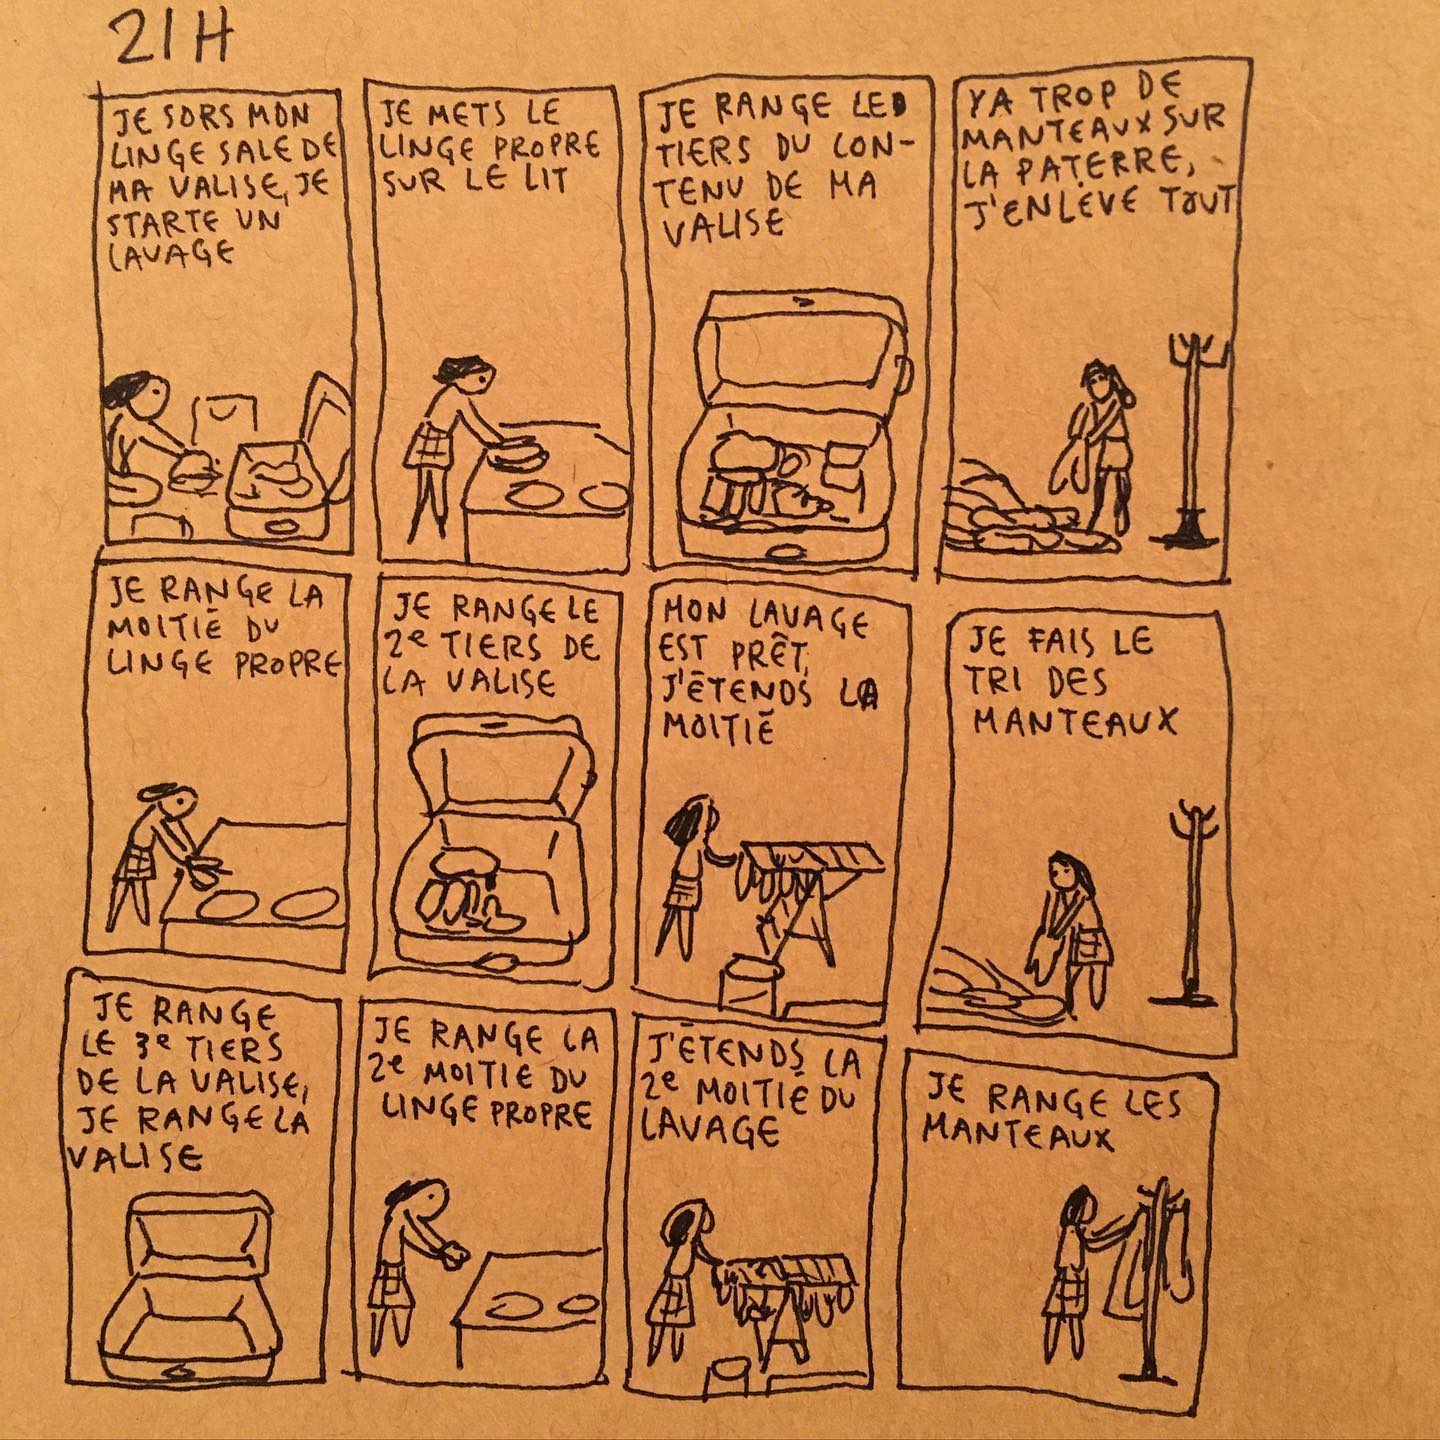 21H
JE SORS MON
LINGE SALE DE
MA VALISE, JE
STARTE UN
LAVAGE
JE METS LE
LINGE PROPRE
SUR LE LIT
JE RANGE LE
TIERS DU CON-
TENU DE MA
VALISE
YA TROP DE
MANTEAUX SUR
LA PATERRE,
J'ENLÈVE TOUT
JE RANGE LA
MOITIÉ DU
LINGE PROPRE
JE RANGE LE
2e TIERS DE
LA VALISE
MON LAVAGE
EST PRÊT,
J'ÉTENDS LA
MOITIÉ
JE FAIS LE
TRI DES
MANTEAUX
JE RANGE
LE 3e TIERS
DE LA VALISE,
JE RANGE LA
VALISE
JE RANGE LA
2e MOITIE DU
LINGE PROPRE
J'ÉTENDS LA
2e MOITIÉ DU
LAVAGE
JE RANGE LES
MANTEAUX